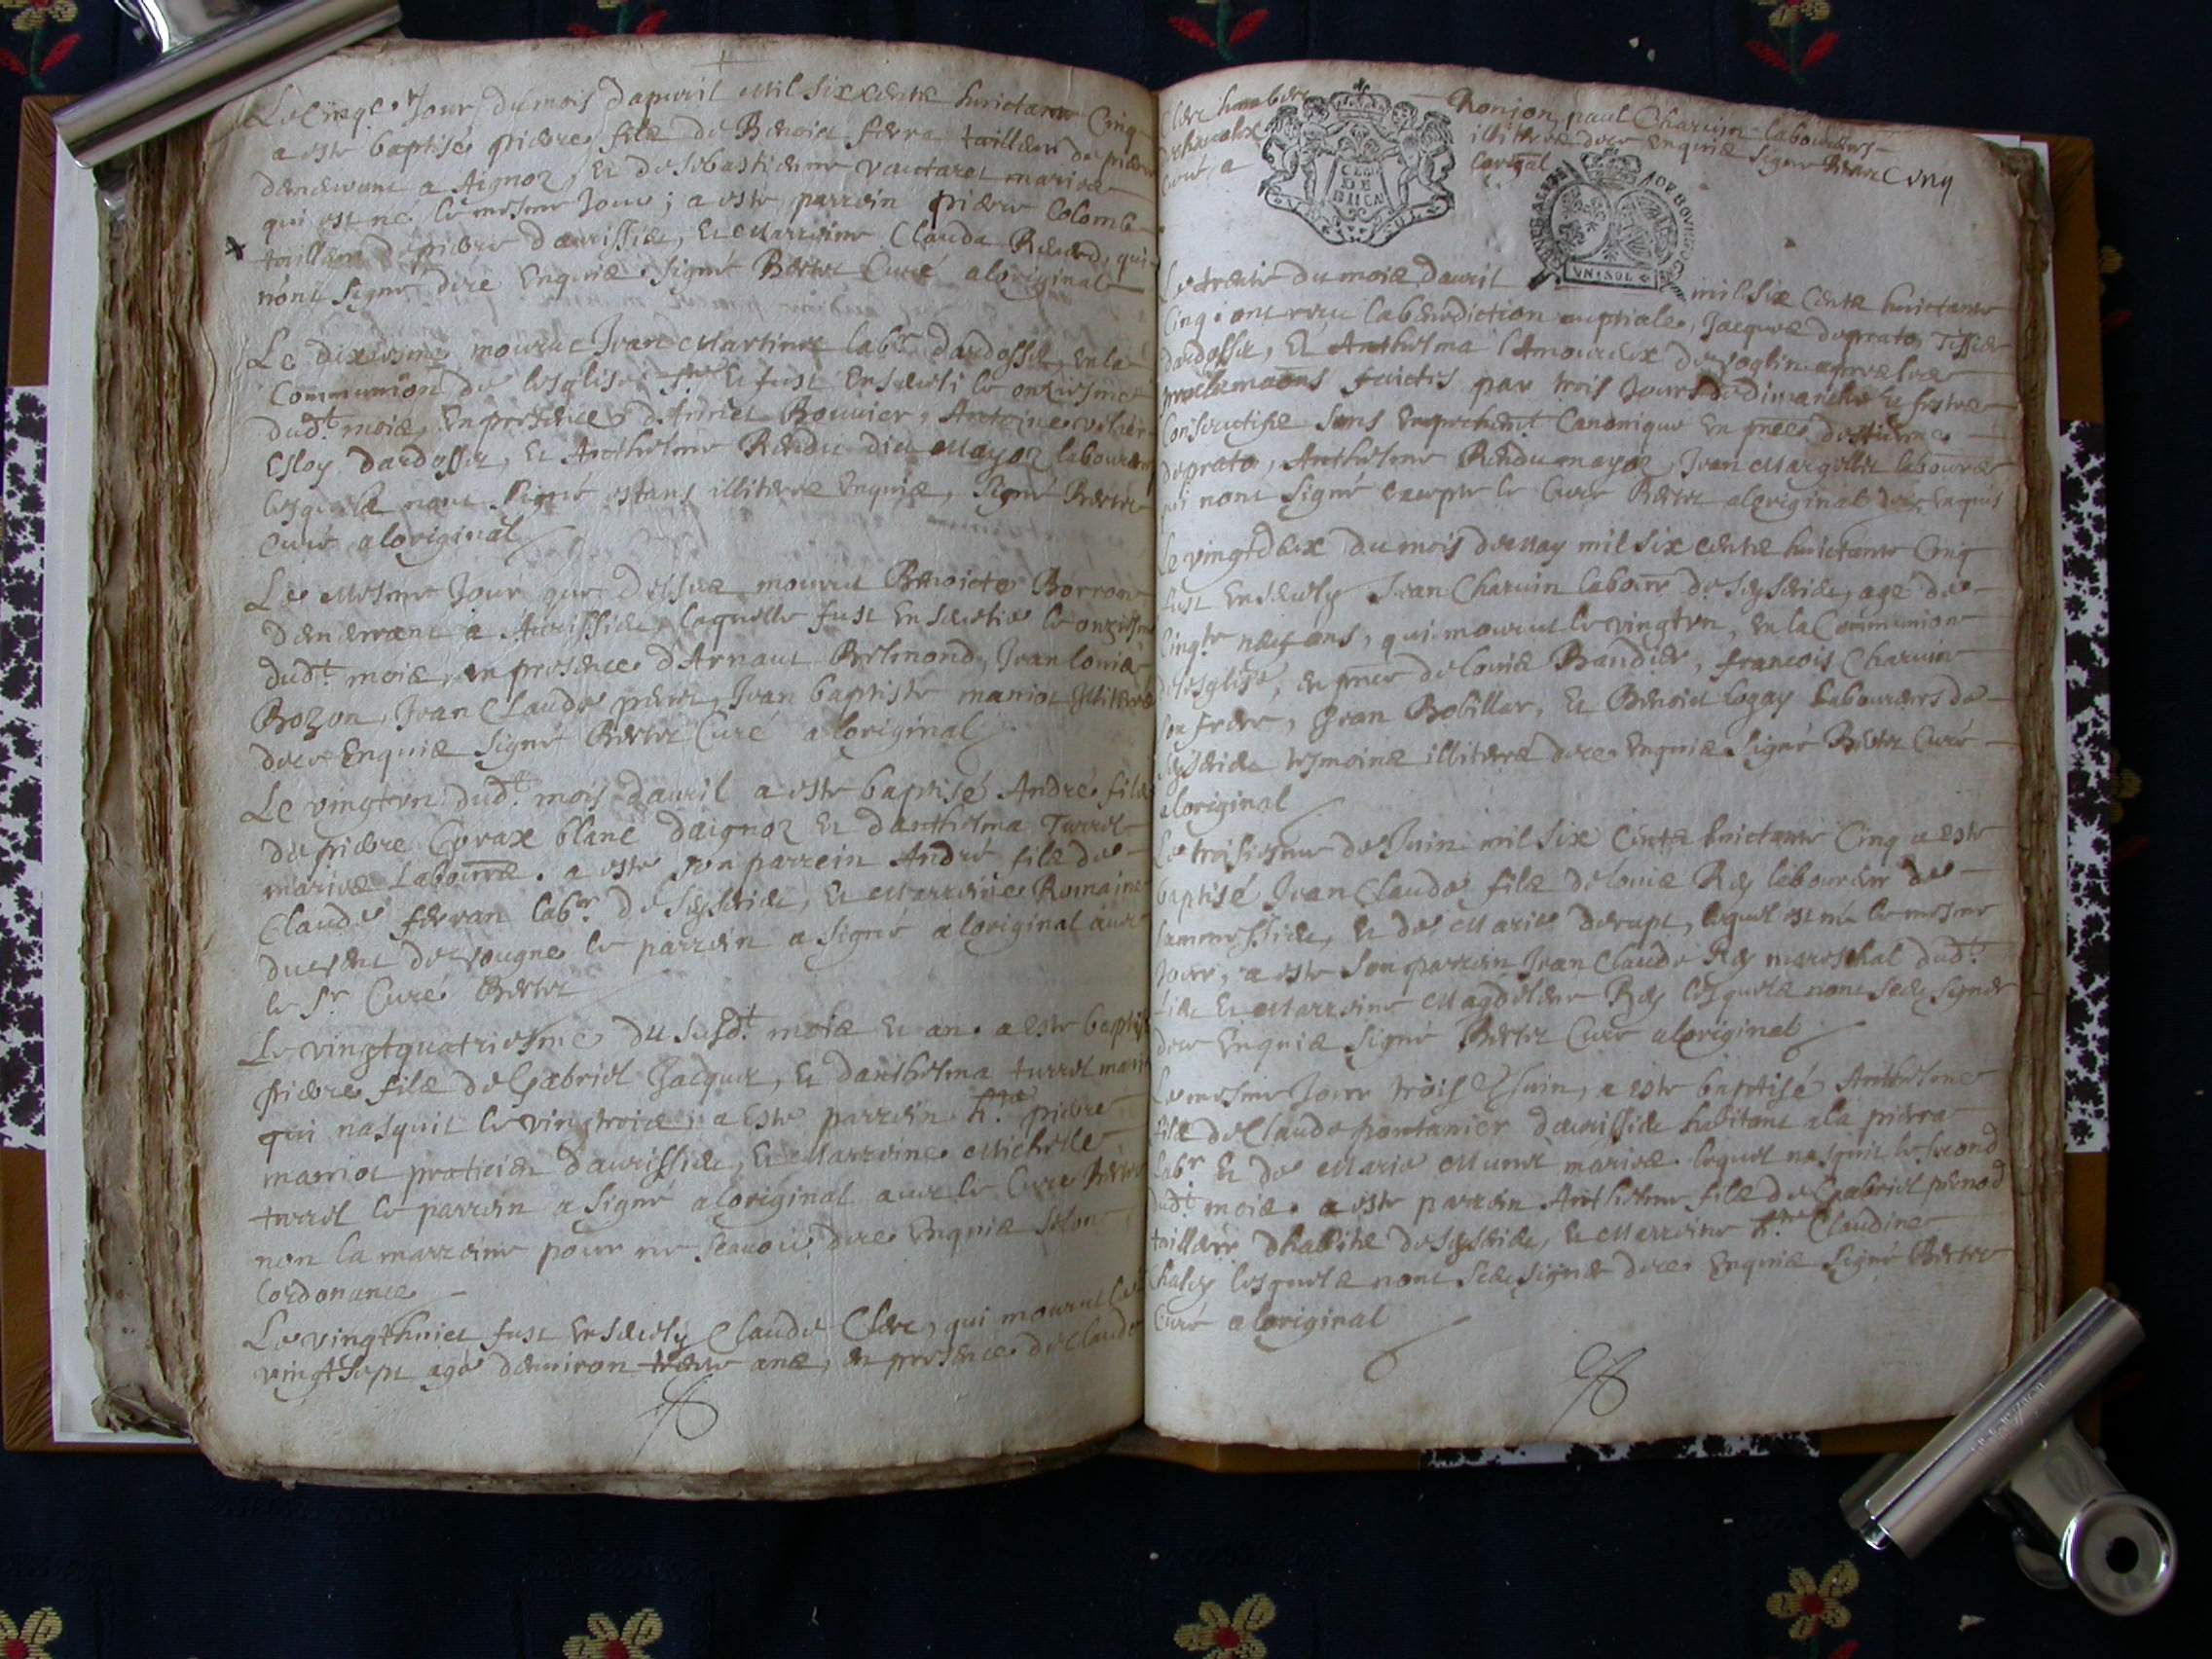 Le cinqe Jour du mois dapuril Mil six centz huictante Cinq
a este baptisé pierre filz de Benoict ferra tailleur de pierre
demeurant a Aignoz, et de sebastienne vautaret mariez
qui est né le mesme Jour; a este parrein pierre Colomb
tailleur de pierre daurissieu, et Marreine Clauda qui
nont signe dere Enquis signé Curé aloriginal
Le dixiesme mourut Jean Martinet labr dardossett, en la
Communion de lesglise et fust Enseueli le onziesme
dudt mois, En presence Bouvier, Antoine
Esloy dardosset, et Anthelme Rendu dict Mayoz laboureurs
lesquelz nont signé estans illiterez Enquis, signé
Curé aloriginal
Le Mesme Jour que dessus mourut Benoicte Borron
demeurant a Aurissieu, laquelle fust Enseuelie le onziesme
dudt mois, en presence dArnaut Brelmond, Jean louis
Bozon, Jean Claude peret, Jean baptiste marriot Illiterez
dere Enquis signé Curé aloriginal
Le vingtvn dudt mois dauril a este baptisé André filz
de pierre blanc daignoz et danthelma Turrel
mariez Labourrs. a este son parrein André filz de
Claude ferran labr de seysseieu, et Marreine Romaine
ducrent de vougne le parrein a signé aloriginal auec
le sr Curé
Le vingtquatriesme du susdt mois et an. a este baptisé
pierre filz de Gabriel Jacquet, et danthelma turrel mariez
qui nasquit le vingtrois; a este parrein hte pierre
marriot praticien daurissieu, et Marreine Michelle
turrel le parrein a signé aloriginal auec le Curé
non la marreine pour ne scauoir dere Enquis selon
lordonance
Le vingthuict fust Enseuely Claude Clerc, qui mourut le
vingtsept agé denuiron trente ans, en presence de Claude
Clerc
Curé a
Ronjon, paul Charuin laboureurs
illiterez dere Enquis signé
lorignal
Cinq
VN SOL
VN SOL
Le trente du mois dauril mil six centz huictante
Cinq; ont receu la benediction nuptiale, Jacques deprato Tissier
dardosset, et Anthelma lAmoureux de voglin apres les
proclemaons faictes par trois Jours de dimanche et festes
Consecutifz sans Empechent Canonique en pnce destienne
deprato, Anthelme Rendu mayoz, Jean Margellit laboure
qui nont signé excepte le Curé aloriginal dere Enquis
Le vingtdeux du mois de May mil six centz huictante Cinq
fust Enseuely Jean Charuin labourr de seysseieu, agé de
Cinqte neuf ans, qui mourut le vingtvn, en la Communion
delesglise, en pnce de louis Bandier, francois Charuin
son frere, Jean Bobillar, et Benoict logay laboureurs de
seysseieu tesmoins illiterez dere Enquis signé Curé
aloriginal
Le troisiesme de Juin mil six centz huictante Cinq a este
baptisé Jean Claude filz de louis Rey laboureur de
et de Marie derupt, lequel est né le mesme
Jour, a este son parrein Jean Claude Rey mareschal dudt
lieu et Marreine Magdeleine Rey lesquelz nont sceu signer
dere Enquis signé Curé aloriginal
Le mesme Jour trois de Juin, a este baptisé Anthelme
filz de Claude pontanier daurissieu habitant a la pierra
labr et de Marie Munet mariez lequel nasquit le second
dudt mois. a este parrein Anthelme filz de Gabriel penod
tailleur dhabitz de seysseieu, et Marreine hte Claudine
Chaley lesquelz nont sceu signer dere Enquis signé
Curé aloriginal